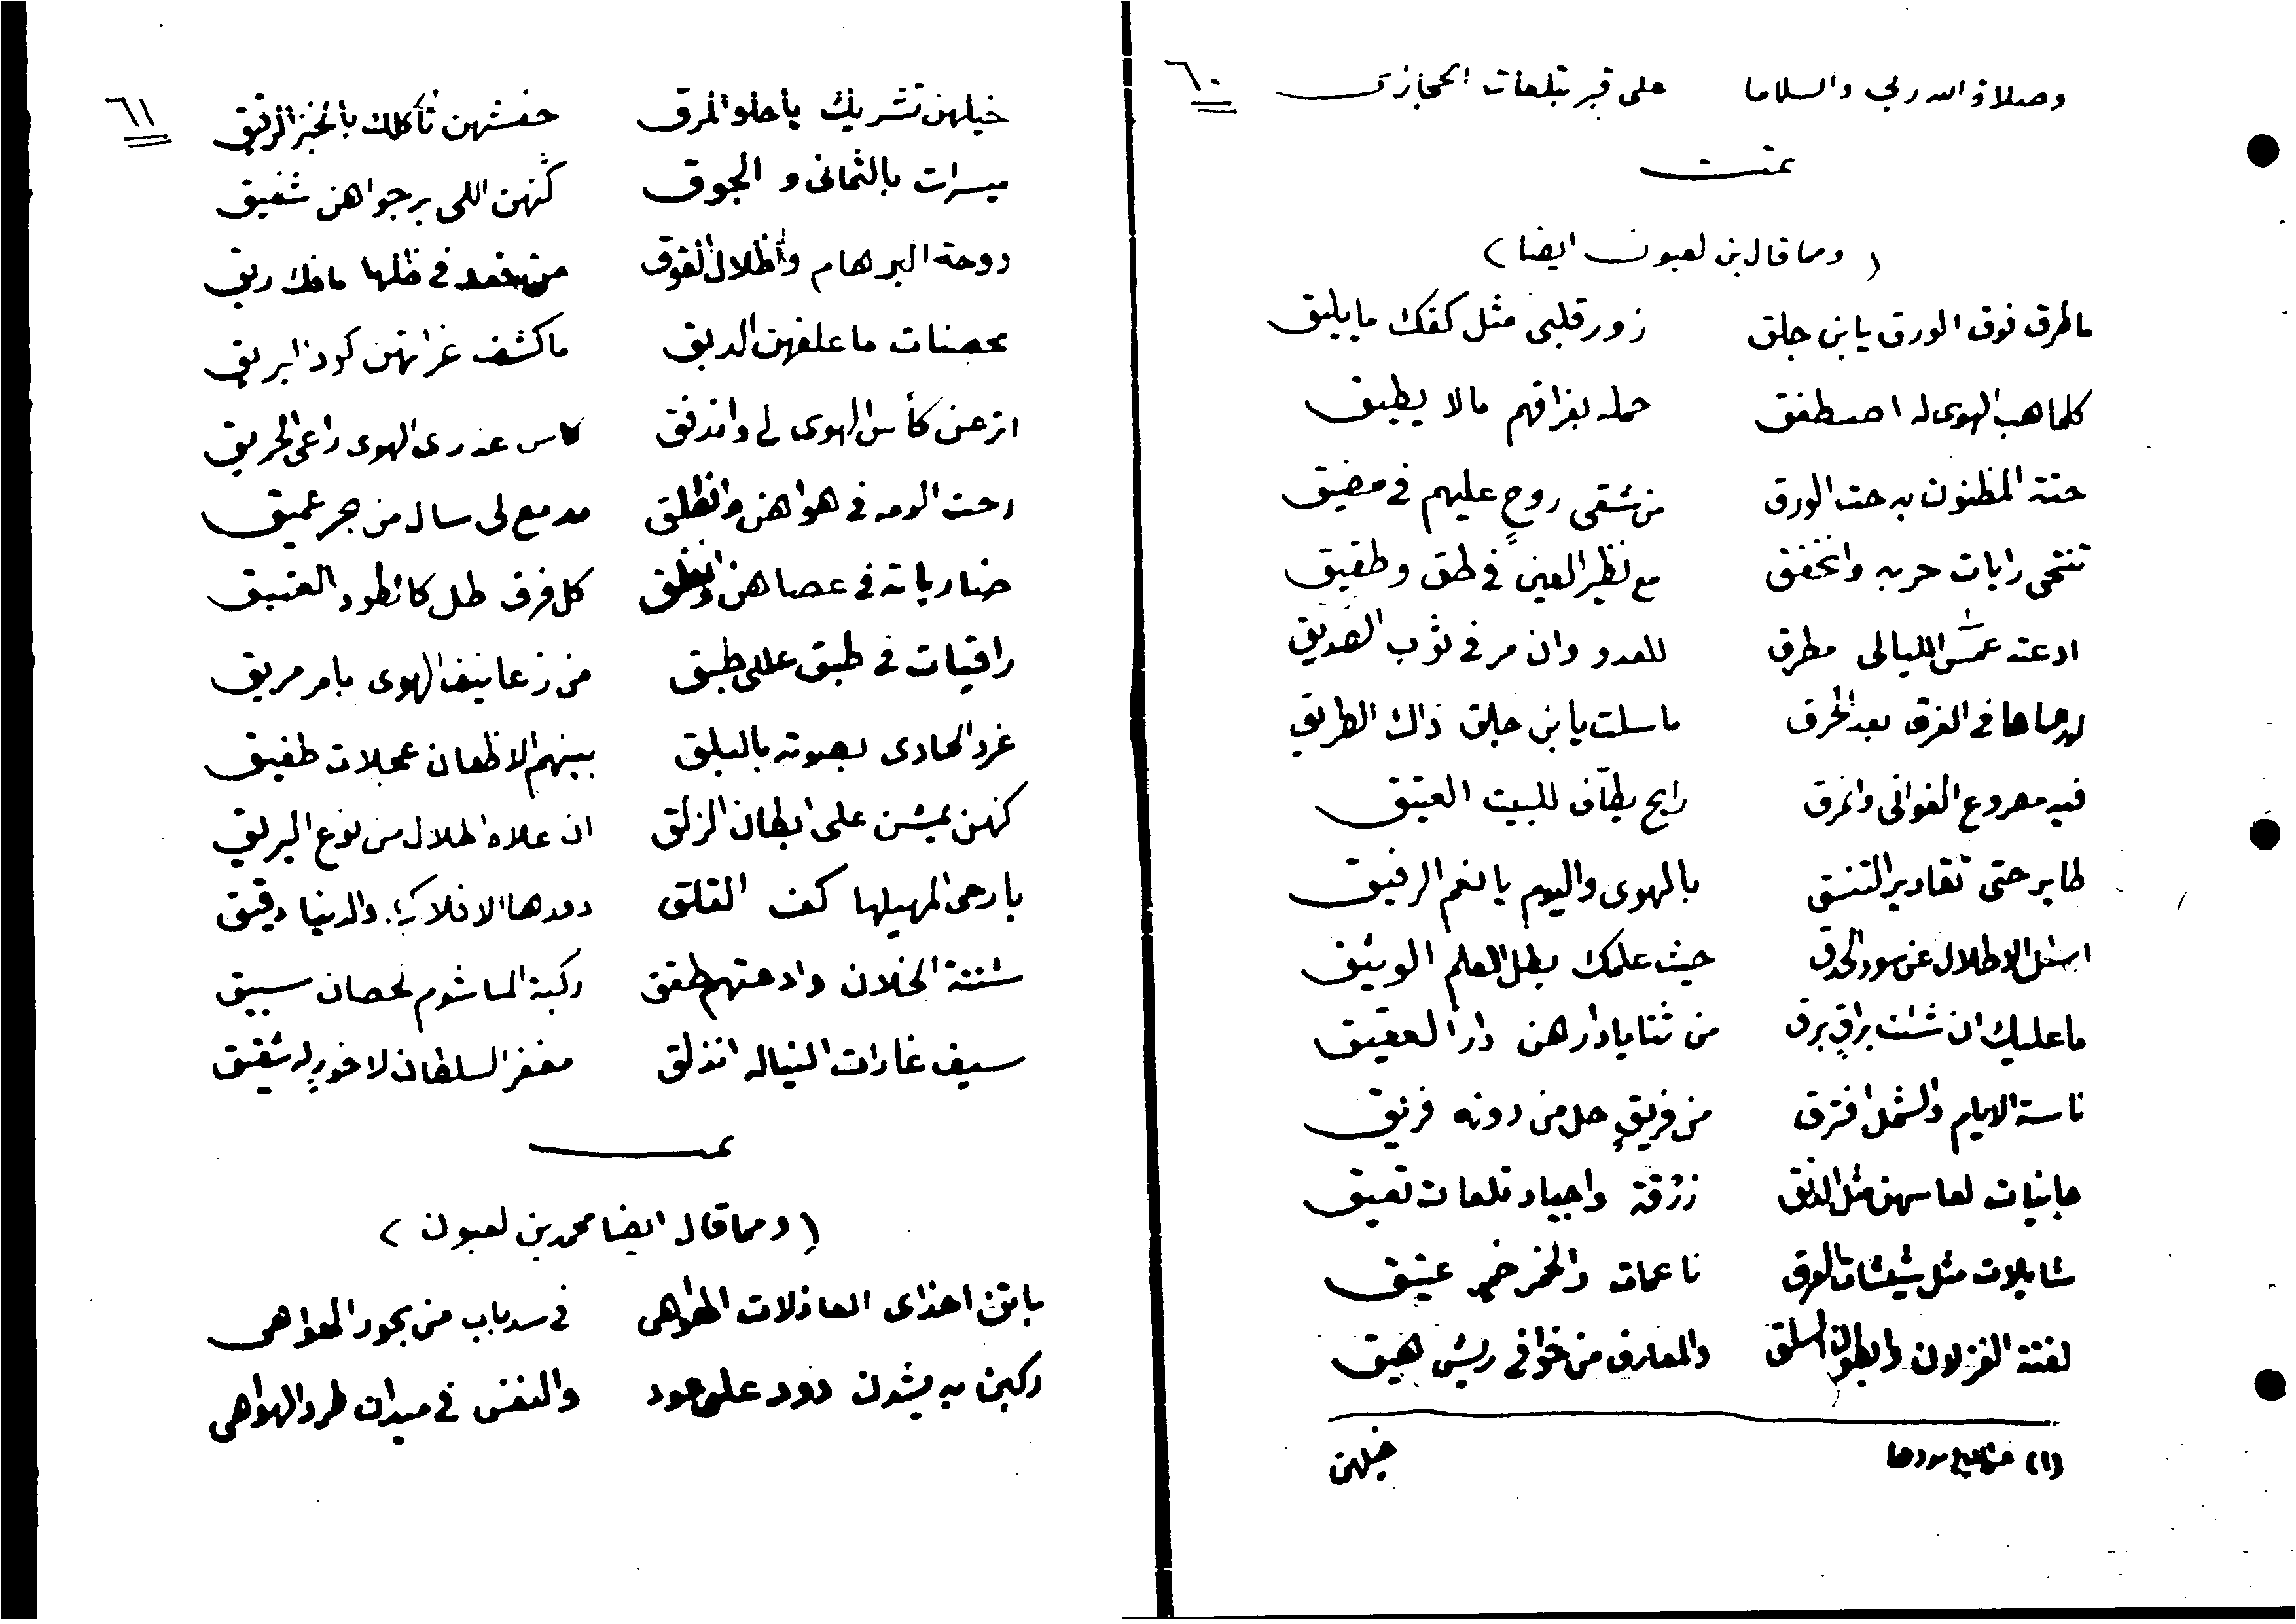 ٦٠
وصلاة الله ربي والسلاما على قبر بتلعات الحجازي
تمت
( ومما قال بن لعبون ايضا )
ما طرق فوق الورق يا بن جلق زور قلبي مثل كفك ما يليق
كلما هب الهوى له اصطفق حمله بفراقهم مالا يطيق
حتة المظنون به حت الورق من شقى روحٍ عليهم في مضيق
تنتحي رايات حربه وانخفق مع نظير العين في طق وطقيق
ادعته عمس الليالي مطرق للعدو وان مر في ثوب الصديق
في الغرق بعد الحرق ما سلت يا بن جلق ذاك الطريق
فيه مصروع الغواني وانمرق رايح يطاف للبيت العتيق
طاير حتى تقادير التنسق بالهوى واليوم يا نعم الرفيق
اسئل الاطلال عن سود الحدق حيث علمك بطل العلم الوثيق
ما عليك ان شئت براقٍ برق من ثنايا دارهن دار العقيق
ناسة الايام والشمل افترق من فريقٍ حل من دونه فريق
مثل زرقة واجياد تلعات تعيق
شايلات مثل شيشات العرق ناعمات والخمر خمر عتيق
لفتة الغزلان وابطون السلق والمعارف من خوافي ريش هيق
(١)
خيلهن
٦١
خيلهن تشريك يا حلو المرق حفشهن تأكلك بالخبز الرقيق
ميسرات بالثماني والجوق كنهن اللي يرجواهن شفيق
دوحة البرهام واظلال الفوق من يقعد في ظلها ما فك ريق
محصنات ما علفهن الدبق ما كشف غراتهن كود البريق
اترعن كأس الهوى لي واندفق كاس عذري الهوى راعي الحريق
رحت الومه في هواهن وانطلق مدمع لي سال من حجر عميق
ضاريات في عصاهن وانفلق كل فرق طل كالطود العتيق
راقيات في طبق على طبق من زعانيف الهوى بامر مريق
غرد الحادي بصوته بالبلق بينهم الاظعان عجلات طفيق
كنهن يمشن على ابطان الزلق ان علاه اطلال من نوع البريق
يا رحى المهيلها كف القلق دورها الافلاك والدنيا دقيق
شتتة الخلان وادعتهم طقق ركبة الماشوم لحصان سبيق
سيف غارات النياله انذلق مغفر السلطان لاخور له شقيق
تمت
( ومما قال ايضا محمد بن لعبون )
باتن احذاي العاذلات في سد باب من بحور الهواهي
ركبن به يشدن دود على عود والنفس في ميدان طرد الهواهي